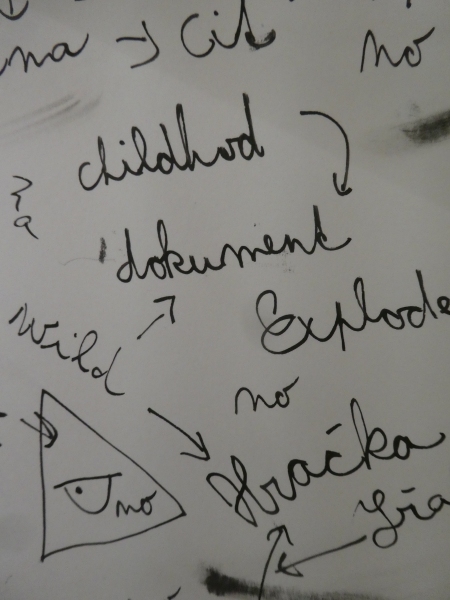 → Cit
no
childhod
dokument
Wild
Explode
no
no
Hračka